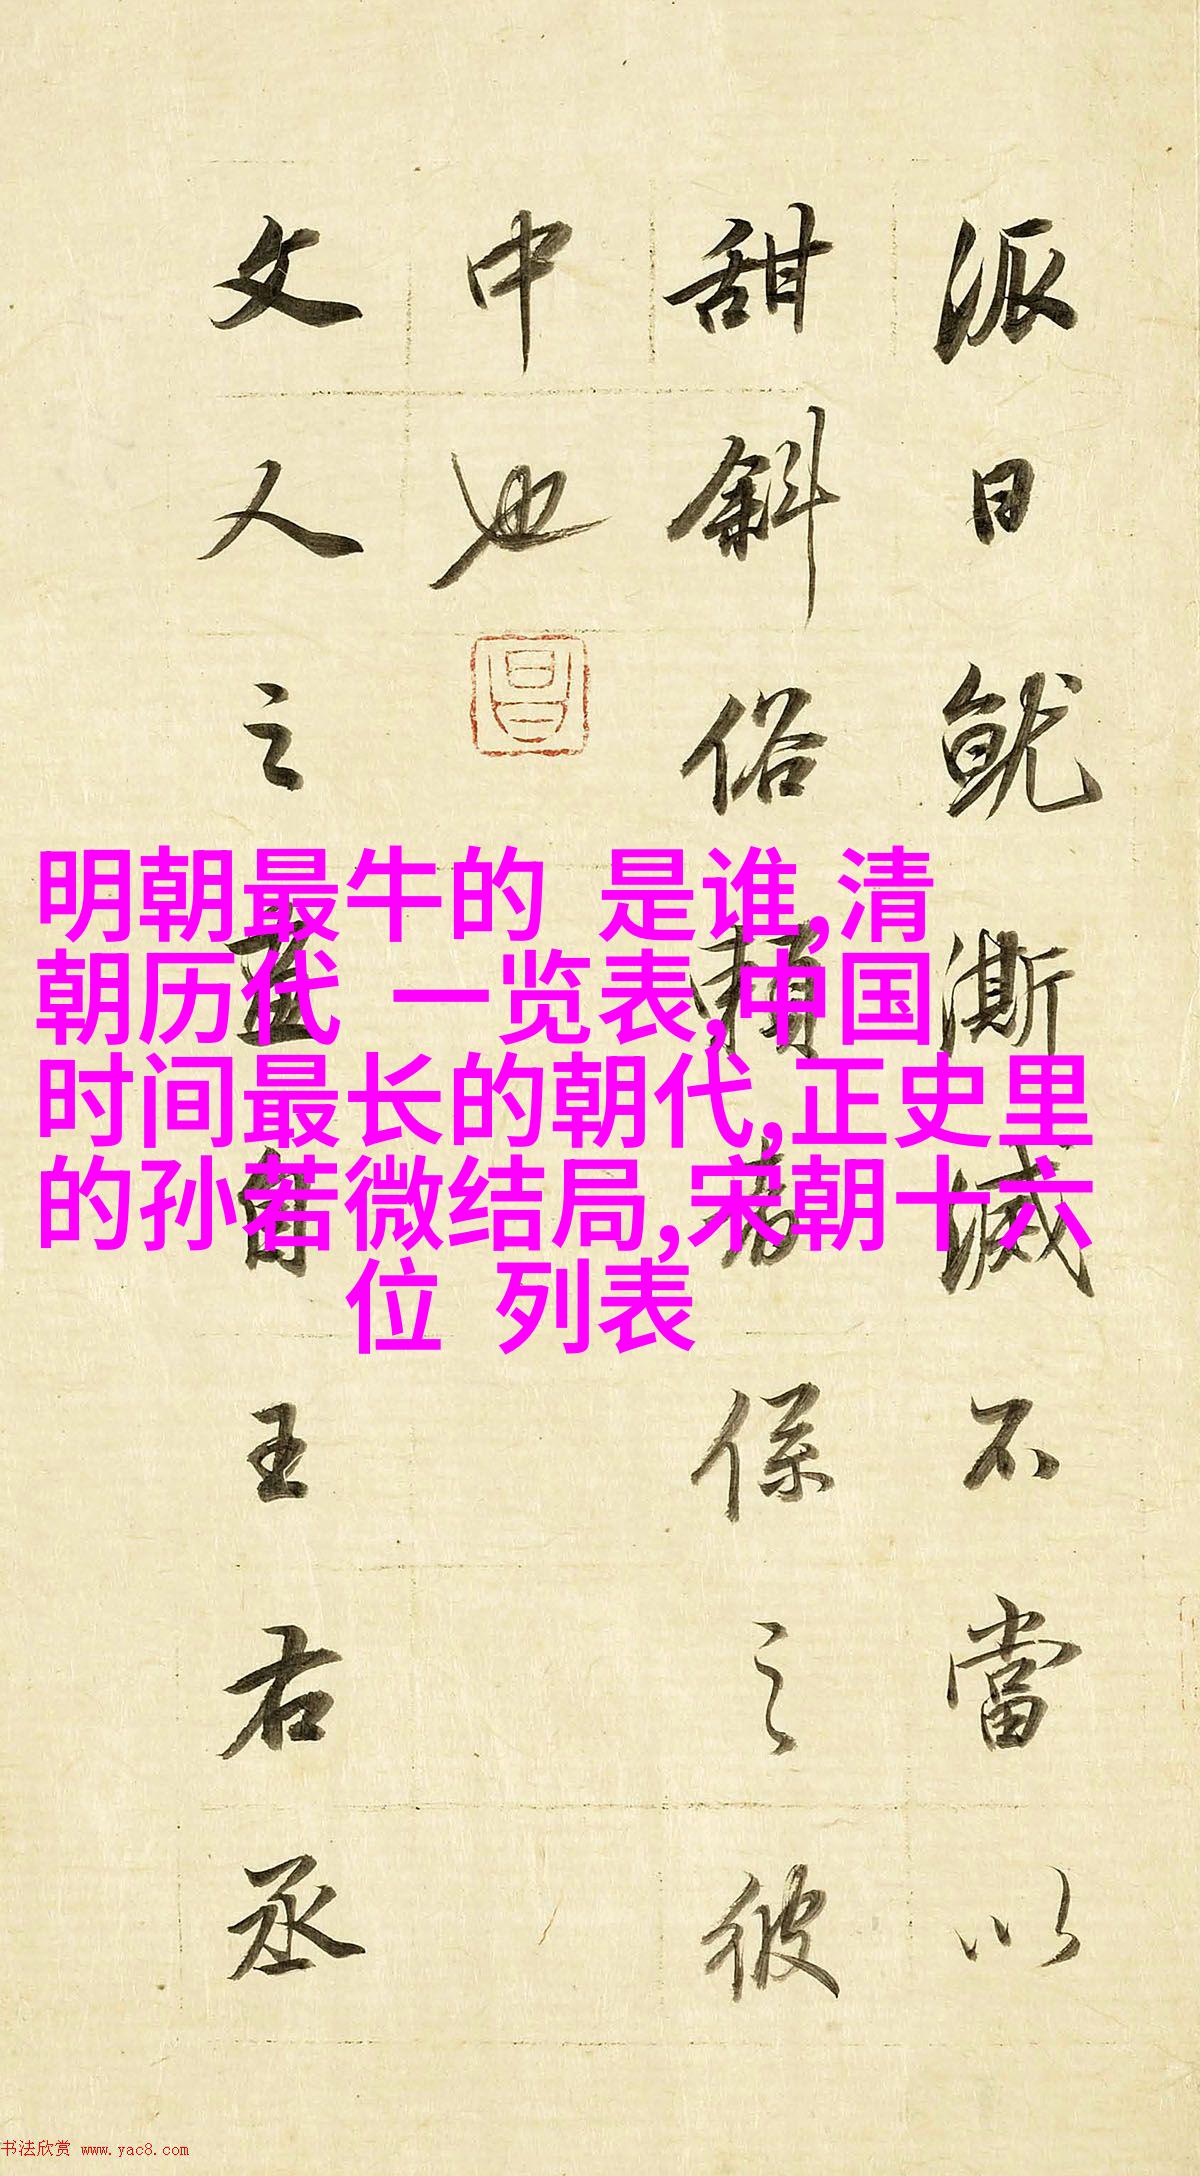 派日就澌滅不當以
甜斜俗賴者係之彼
中也
昌
文人之畫自王右丞
明朝最牛的 是谁,清
朝历代 一览表,中国
时间最长的朝代,正史里
的孙若微结局,宋朝十六
位 列表
书法欣赏 www.yac8.com